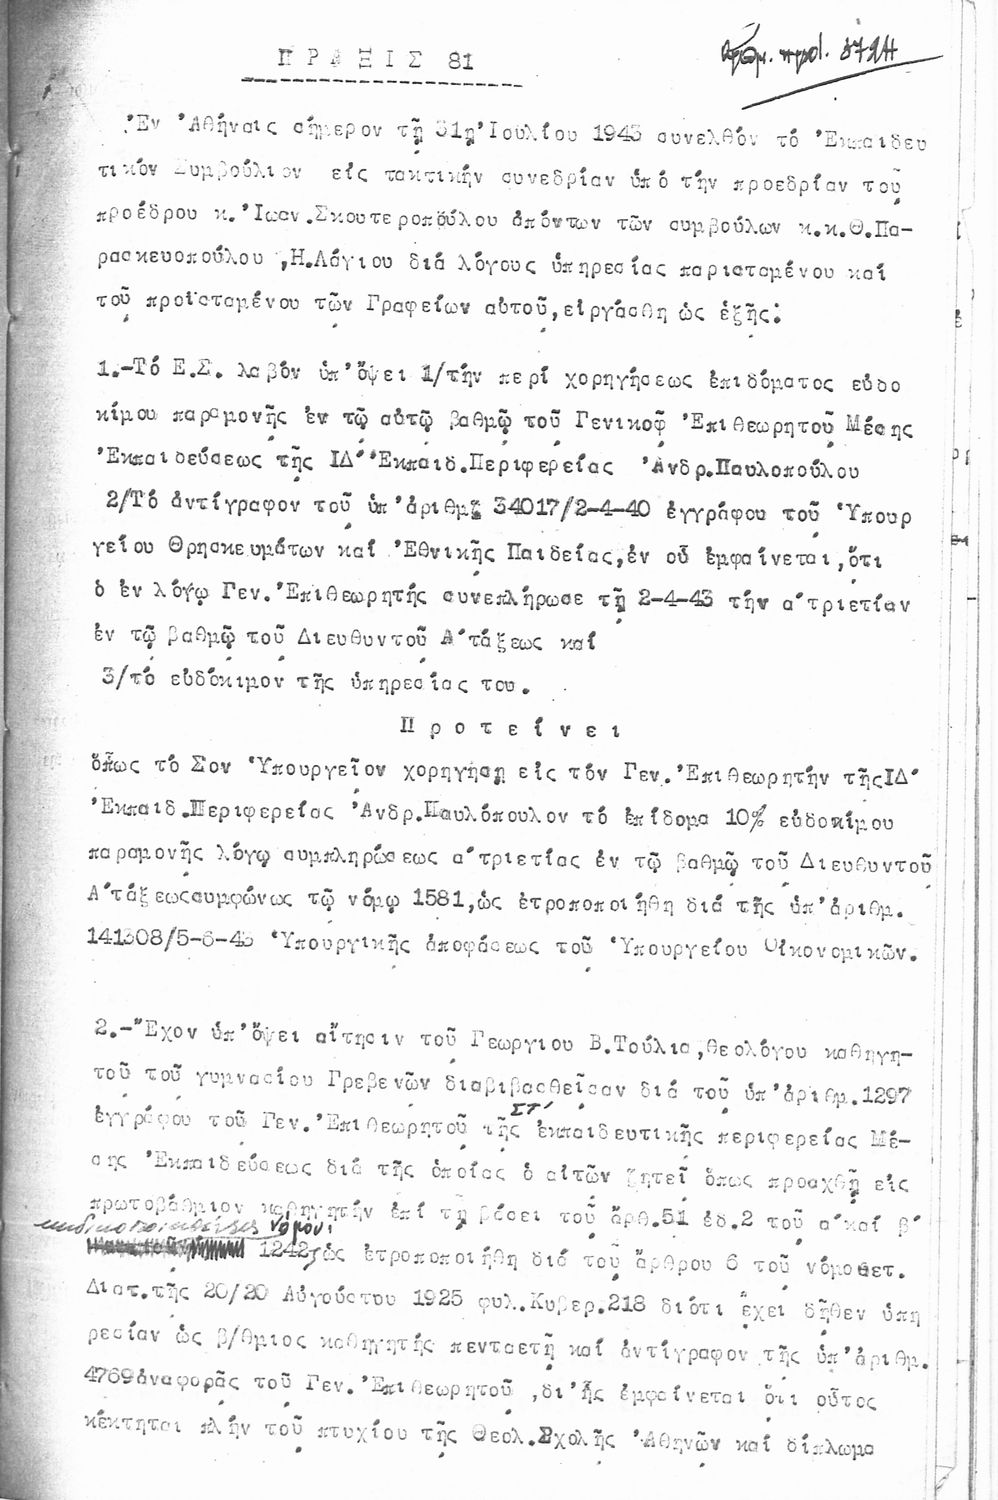 ΠΡΑΞΙΣ 81
Ἀριθμ. πρωτ. 8724
Ἐν Ἀθήναις σήμερον τῇ 31ῃ Ἰουλίου 1943 συνελθόν τό Ἐκπαιδευ
τικόν Συμβούλιον εἰς τακτικήν συνεδρίαν ὑπό τήν προεδρίαν τοῦ
προέδρου κ. Ἰωαν.Σκουτεροπούλου ἀπόντων τῶν συμβούλων κ.κ.Θ.Πα-
ρασκευοπούλου ,Η.Λάγιου διά λόγους ὑπηρεσίας παρισταμένου καί
τοῦ προϊσταμένου τῶν Γραφείων αὐτοῦ,εἰργάσθη ὡς ἑξῆς:
1.-Τό Ε.Σ. λαβόν ὑπ'ὄψει 1/τήν περί χορηγήσεως ἐπιδόματος εὐδο
κίμου παραμονῆς ἐν τῷ αὐτῷ βαθμῷ τοῦ Γενικοῦ Ἐπιθεωρητοῦ Μέσης
Ἐκπαιδεύσεως τῆς ΙΔ' Ἐκπαιδ.Περιφερείας Ἀνδρ.Παυλοπούλου
2/Τό ἀντίγραφον τοῦ ὑπ'ἀριθμ 34017/2-4-40 ἐγγράφου τοῦ Ὑπουρ
γείου Θρησκευμάτων καί Ἐθνικῆς Παιδείας,ἐν οὗ ἐμφαίνεται,ὅτι
ὁ ἐν λόγῳ Γεν.Ἐπιθεωρητής συνεπλήρωσε τῇ 2-4-43 τήν α'τριετίαν
ἐν τῷ βαθμῷ τοῦ Διευθυντοῦ Α'τάξεως καί
3/τό εὐδόκιμον τῆς ὑπηρεσίας του.
Π ρ ο τ ε ί ν ε ι
ὅπως τό Σον Ὑπουργεῖον χορηγήσῃ εἰς τόν Γεν.Ἐπιθεωρητήν τῆςΙΔ'
Ἐκπαιδ.Περιφερείας Ἀνδρ.Παυλόπουλον τό ἐπίδομα 10% εὐδοκίμου
παραμονῆς λόγῳ συμπληρώσεως α'τριετίας ἐν τῷ βαθμῷ τοῦ Διευθυντοῦ
Α'τάξεωςσυμφώνως τῷ νόμῳ 1581,ὡς ἐτροποποιήθη διά τῆς ὑπ'ἀριθμ.
141308/5-6-43 Ὑπουργικῆς ἀποφάσεως τοῦ Ὑπουργείου Οἰκονομικῶν.
2.-Ἔχον ὑπ'ὄψει αἴτησιν τοῦ Γεωργιου Β.Τούλια,θεολόγου καθηγη-
τοῦ τοῦ γυμνασίου Γρεβενῶν διαβιβασθεῖσαν διά τοῦ ὑπ'ἀριθμ.1297
ἐγγράφου τοῦ Γεν.Ἐπιθεωρητοῦ τῆς ΣΤ' ἐκπαιδευτικῆς περιφερείας Μέ-
σης Ἐκπαιδεύσεως διά τῆς ὁποίας ὁ αἰτῶν ζητεῖ ὅπως προαχθῇ εἰς
πρωτοβάθμιον καθηγητήν ἐπί τῇ βάσει τοῦ ἄρθ.51 ἐδ.2 τοῦ α'καί β'
κωδικοποιηθέντος νόμου
1242,ὡς ἐτροποποιήθη διά τοῦ ἄρθρου 6 τοῦ νόμοθετ.
Διατ.τῆς 20/20 Αὐγούστου 1925 φυλ.Κυβερ.218 διότι ἔχει δῆθεν ὑπη
ρεσίαν ὡς β/θμιος καθηγητής πενταετῆ καί ἀντίγραφον τῆς ὑπ'ἀριθμ.
4769ἀναφορᾶς τοῦ Γεν.Ἐπιθεωρητοῦ ,δι'ἧς ἐμφαίνεται ὅτι οὗτος
κέκτηται πλήν τοῦ πτυχίου τῆς Θεολ.Σχολῆς Ἀθηνῶν καί δίπλωμα